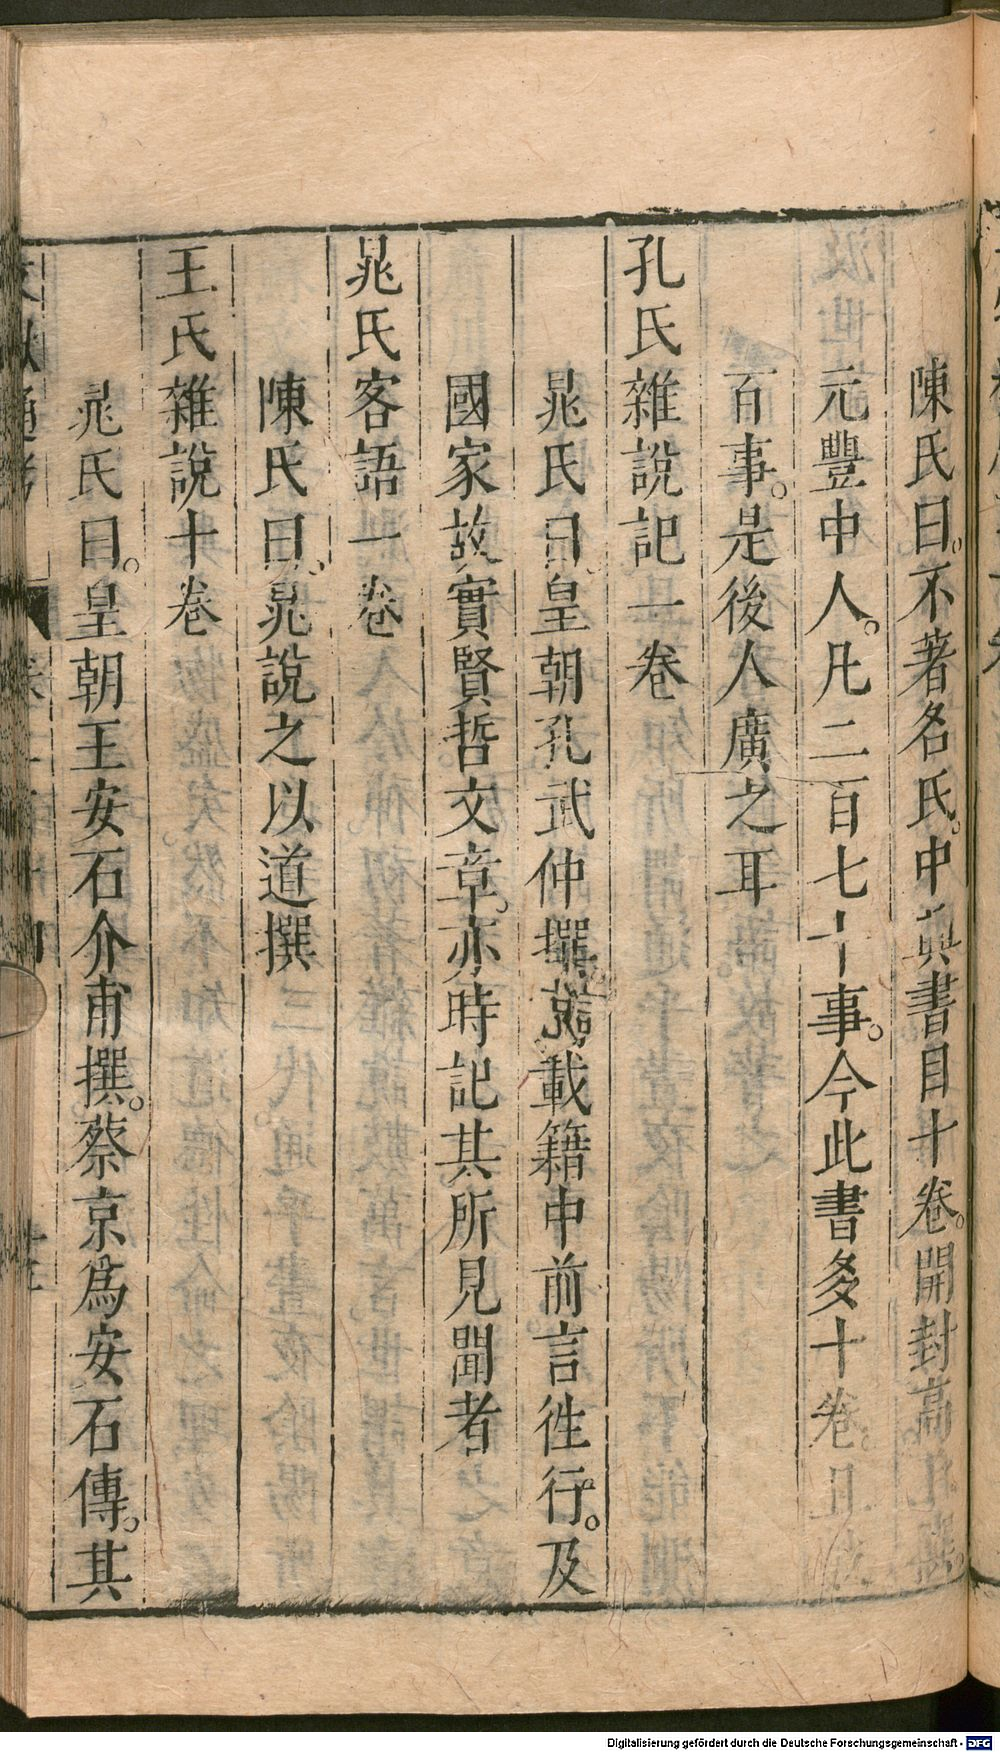 陳氏曰。不著名氏。中興書目十卷。開封高
元豐中人。凡二百七十事。今此書多十卷。且
百事。是後人廣之耳
孔氏雜說記一卷
晁氏曰皇朝孔武仲撰。載籍中前言徃行。及
國家故實賢哲文章。亦時記其所見聞者
晁氏客語一卷
陳氏曰。晁說之以道撰
王氏雜說十卷
晁氏曰。皇朝王安石介甫撰。蔡京為安石傳。其
Digitalisierung gefördert durch die Deutsche Forschungsgemeinschaft - DFG